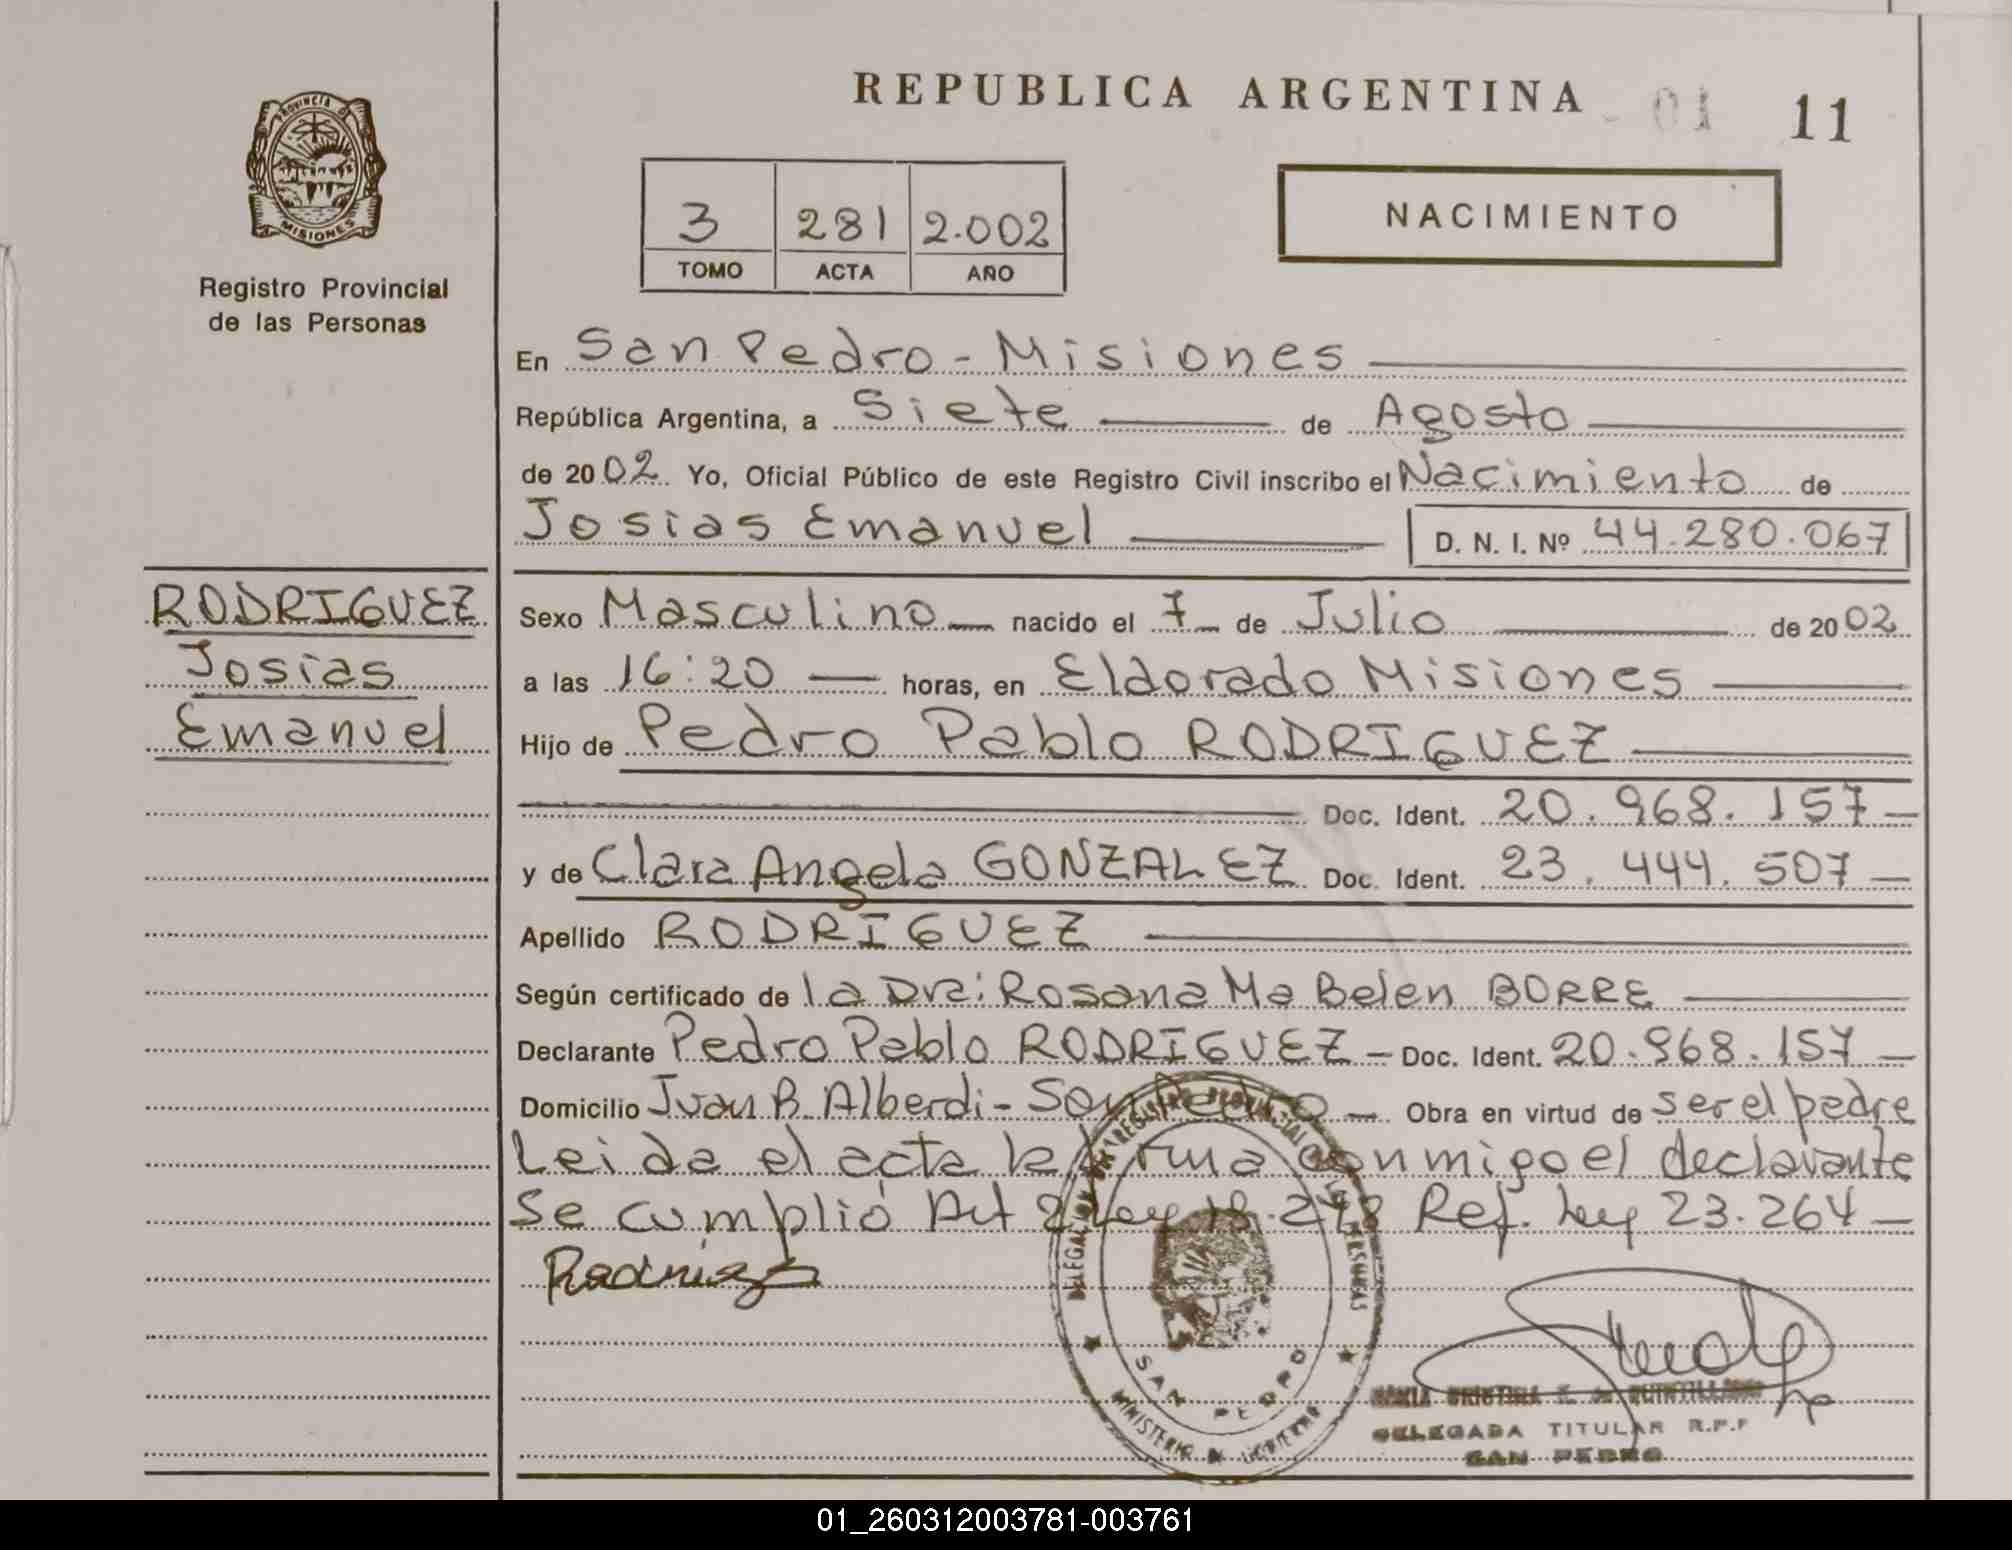 REPUBLICA ARGENTINA
01 11
PROVINCIA DE
MISIONES
Registro Provincial
de las Personas
3 281 2.002
TOMO ACTA AÑO
NACIMIENTO
En San Pedro - Misiones
República Argentina, a Siete de Agosto
de 2002 Yo, Oficial Público de este Registro Civil inscribo el Nacimiento de
Josias Emanuel D. N. I. Nº 44.280.067
RODRIGUEZ
Josias
Emanuel
Sexo Masculino nacido el 7 de Julio de 2002
a las 16:20 horas, en Eldorado Misiones
Hijo de Pedro Pablo RODRIGUEZ
Doc. Ident. 20.968.157
y de Clara Angela GONZALEZ Doc. Ident. 23.444.507
Apellido RODRIGUEZ
Según certificado de la Dra: Rosana Ma Belen BORRE
Declarante Pedro Pablo RODRIGUEZ - Doc. Ident. 20.968.157
Domicilio Juan B. Alberdi - San Pedro Obra en virtud de ser el padre
Leida el acta la firma conmigo el declarante
Se cumplió Art 2 Ley 18.248 Ref. Ley 23.264
Rodriguez
SAN PEDRO
MINISTERIO DE GOBIERNO
MARIA CRISTINA E. de QUINTILLANO
DELEGADA TITULAR R.P.P
SAN PEDRO
01_260312003781-003761